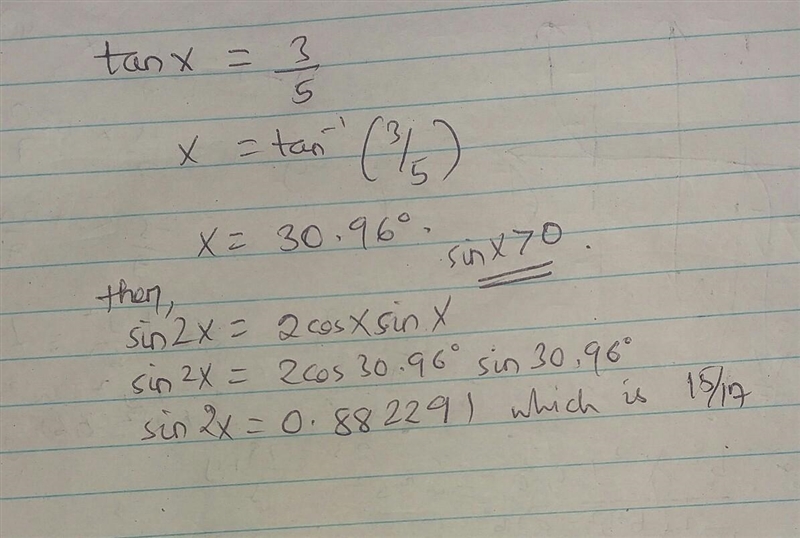 tan x = 3/5
x = tan⁻¹ (3/5)
x = 30.96°.
sin x > 0.
then,
sin 2x = 2 cos x sin x
sin 2x = 2 cos 30.96° sin 30.96°
sin 2x = 0.882291 which is 15/17